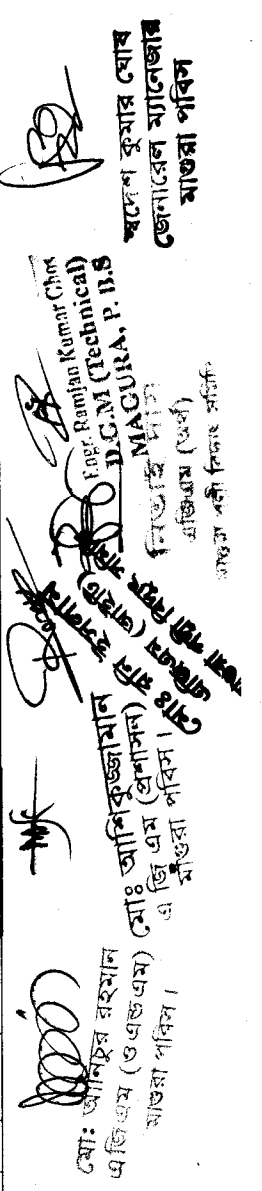 মো: আনিচুর রহমান
এজিএম (ওএন্ডএম)
মাগুরা পবিস।
মোঃ আশিকুজ্জামান
এ জি এম (প্রশাসন)
মাগুরা পবিস।
মোঃ রনি ইসলাম
এজিএম (আইটি)
মাগুরা পল্লী বিদ্যুৎ
Engr. Ramjan Kumar Ghos
D.G.M (Technical)
MAGURA, P. B.S
নিতাই দাস
এজিএম (অর্থ)
মাগুরা পল্লী বিদ্যুৎ সমিতি
স্বদেশ কুমার ঘোষ
জেনারেল ম্যানেজার
মাগুরা পবিস